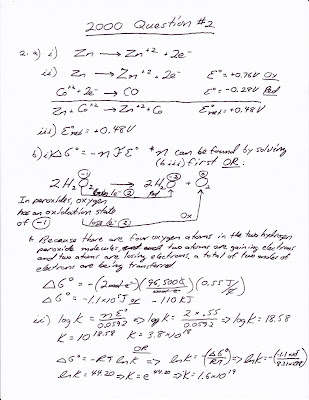 2000 Question #2
2. a) i) Zn → Zn⁺² + 2e⁻
ii) Zn → Zn⁺² + 2e⁻ E° = +0.76V Ox
Co⁺² + 2e⁻ → CO E° = -0.28V Red
Zn + Co⁺² → Zn⁺² + Co E°net = +0.48V
iii) E°net = +0.48V
b) i) ΔG° = -nFE° *n can be found by solving
(b iii) first OR:
2H₂O₂ → 2H₂O + O₂
-1 -2 0
Red
In peroxides, oxygen
has an oxidation state
of -1
lose 1e⁻ 2
Ox
* Because there are four oxygen atoms in the two hydrogen
peroxide molecules, and two atoms are gaining electrons
and two atoms are losing electrons, a total of two moles of
electrons are being transferred.
ΔG° = -(2 mol e⁻)(96,500 C / mol e⁻)(0.55 J/C)
ΔG° = -1.1×10⁵ J or -110 KJ
ii) log K = nE°/0.0592 ⇒ log K = 2 × .55/0.0592 ⇒ log K = 18.58
K = 10^18.58 K = 3.8×10¹⁸
OR
ΔG° = -RT ln K ⇒ ln K = -(ΔG°/RT) ⇒ ln K =
ln K = 44.20 ⇒ K = e^44.20 ⇒ K = 1.6×10¹⁹